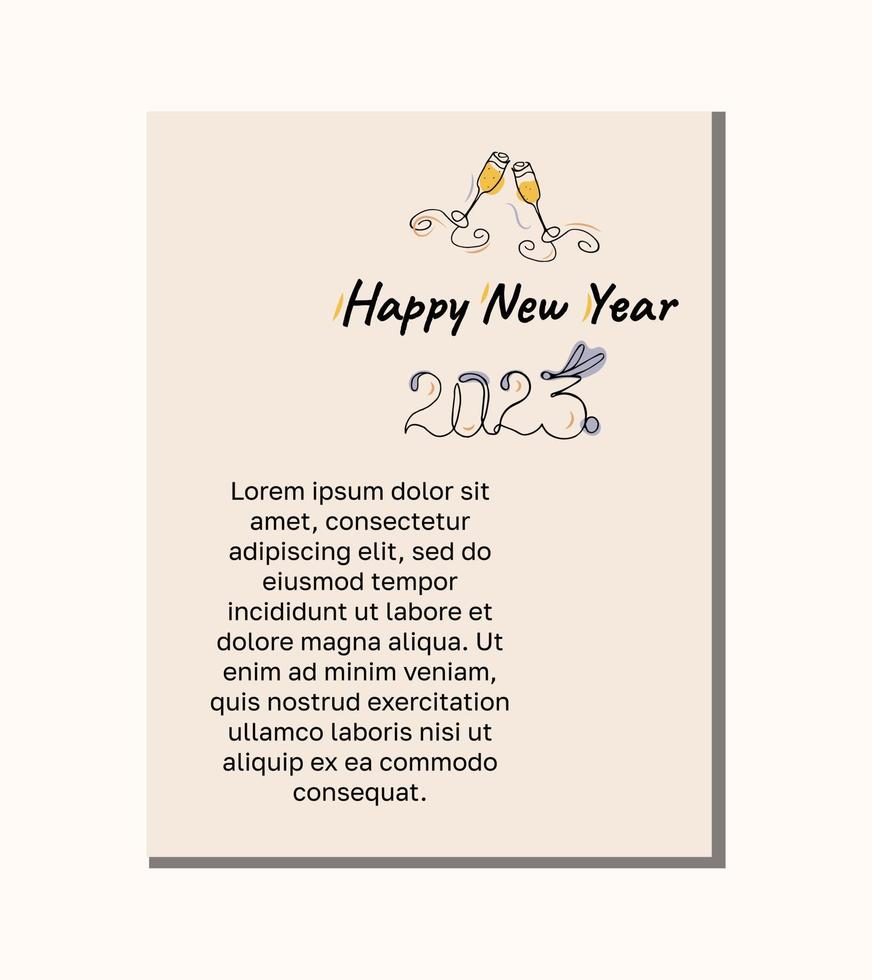 Happy New Year
2023
Lorem ipsum dolor sit
amet, consectetur
adipiscing elit, sed do
eiusmod tempor
incididunt ut labore et
dolore magna aliqua. Ut
enim ad minim veniam,
quis nostrud exercitation
ullamco laboris nisi ut
aliquip ex ea commodo
consequat.